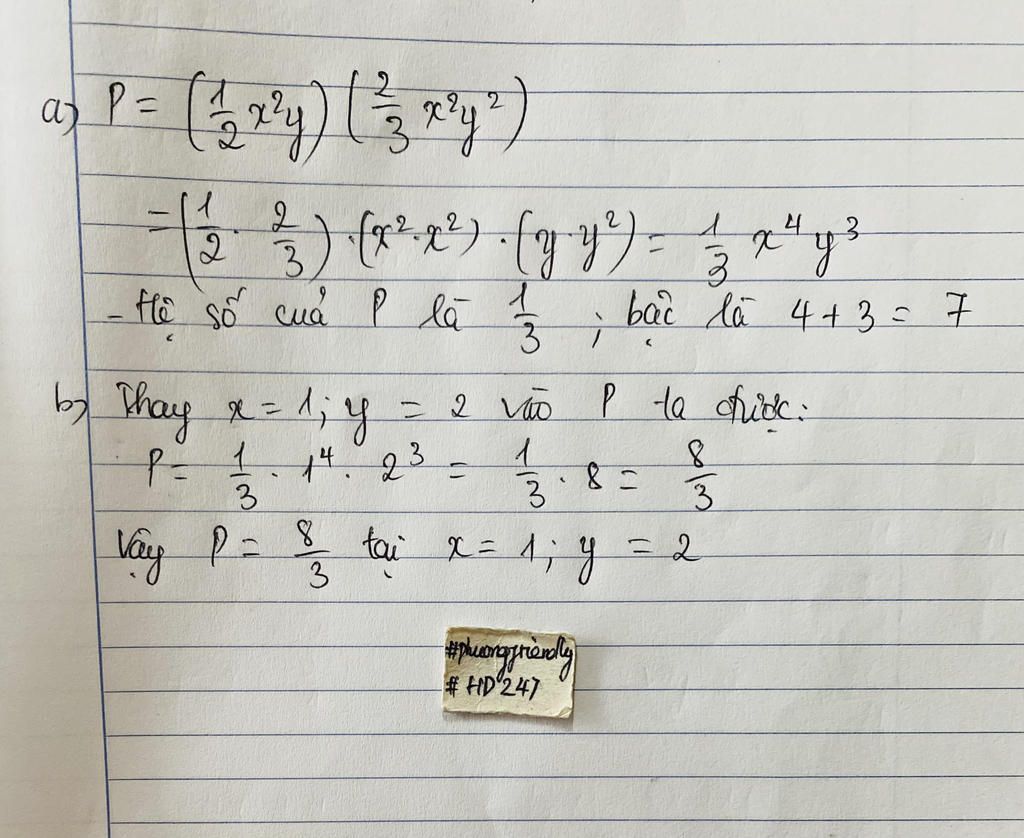 a) P = (1/2 x²y) (2/3 x²y²)
= (1/2 · 2/3) · (x² · x²) · (y · y²) = 1/3 x⁴ y³
- Hệ số của P là 1/3 ; bậc là 4 + 3 = 7
b) Thay x = 1; y = 2 vào P ta được:
P = 1/3 · 1⁴ · 2³ = 1/3 · 8 = 8/3
Vậy P = 8/3 tại x = 1; y = 2
#phuongfriendly
# HD247